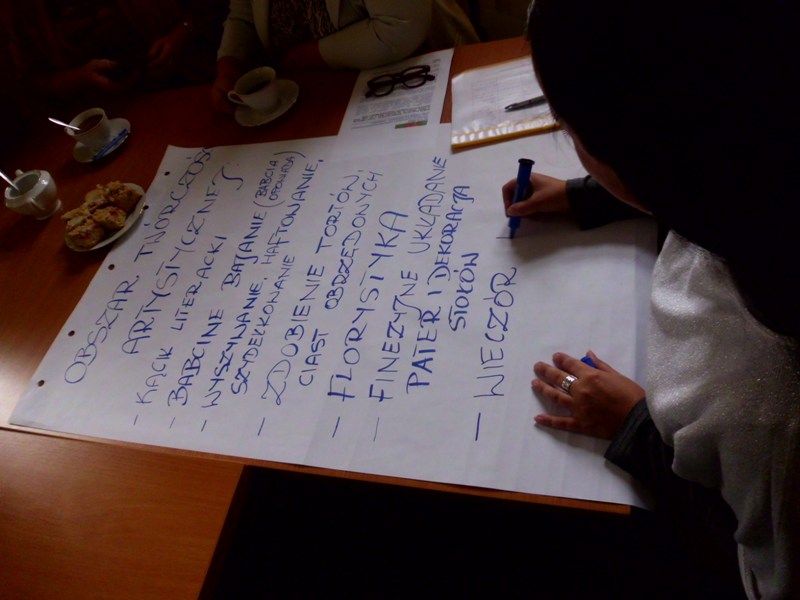 OBSZAR TWÓRCZOŚCI
ARTYSTYCZNEJ:
- KĄCIK LITERACKI
- BABCINE BAJANIE (BABCIA OPOWIADA)
- WYSZYWANIE, HAFTOWANIE,
SZYDEŁKOWANIE
- ZDOBIENIE TORTÓW,
CIAST OBRZĘDOWYCH
- FLORYSTYKA
- FINEZYJNE UKŁADANIE
PATER I DEKORACJA
STOŁÓW
- WIECZÓR